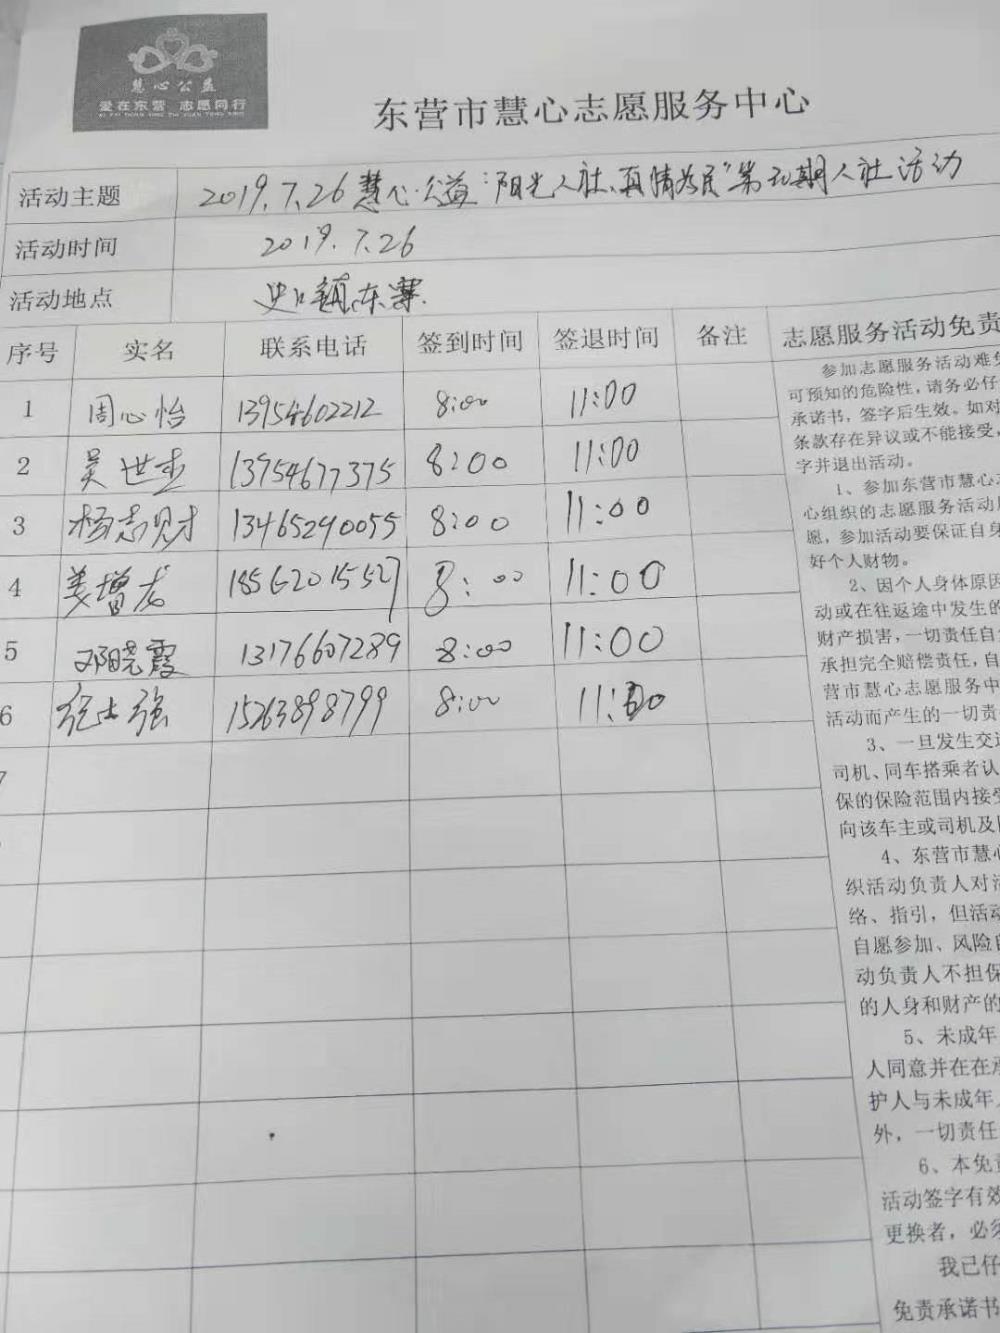 慧心公益
爱在东营 志愿同行
东营市慧心志愿服务中心
活动主题 2019.7.26慧心公益:"阳光人社、真情为民"第五期人社活动
活动时间 2019.7.26
活动地点 史口镇东寨
序号 实名 联系电话 签到时间 签退时间 备注 志愿服务活动免责
1 周心怡 13954602212 8:00 11:00
2 吴世杰 13954677375 8:00 11:00
3 杨志财 13465290055 8:00 11:00
4 姜增龙 18562015527 8:00 11:00
5 邓晓霞 13176607289 8:00 11:00
6 强 15263898799 8:00 11:00
7
参加志愿服务活动难免
可预知的危险性,请务必仔
承诺书,签字后生效。如对
条款存在异议或不能接受,
字并退出活动。
1、参加东营市慧心志
心组织的志愿服务活动
愿,参加活动要保证自身
好个人财物。
2、因个人身体原因
动或在往返途中发生的
财产损害,一切责任自
承担完全赔偿责任,自
营市慧心志愿服务中
活动而产生的一切责
3、一旦发生交通
司机、同车搭乘者认
保的保险范围内接受
向该车主或司机及
4、东营市慧心
织活动负责人对活
络、指引,但活动
自愿参加、风险自
动负责人不担保
的人身和财产的
5、未成年
人同意并在在承
护人与未成年人
外,一切责任
6、本免责
活动签字有效
更换者,必须
我已仔
免责承诺书